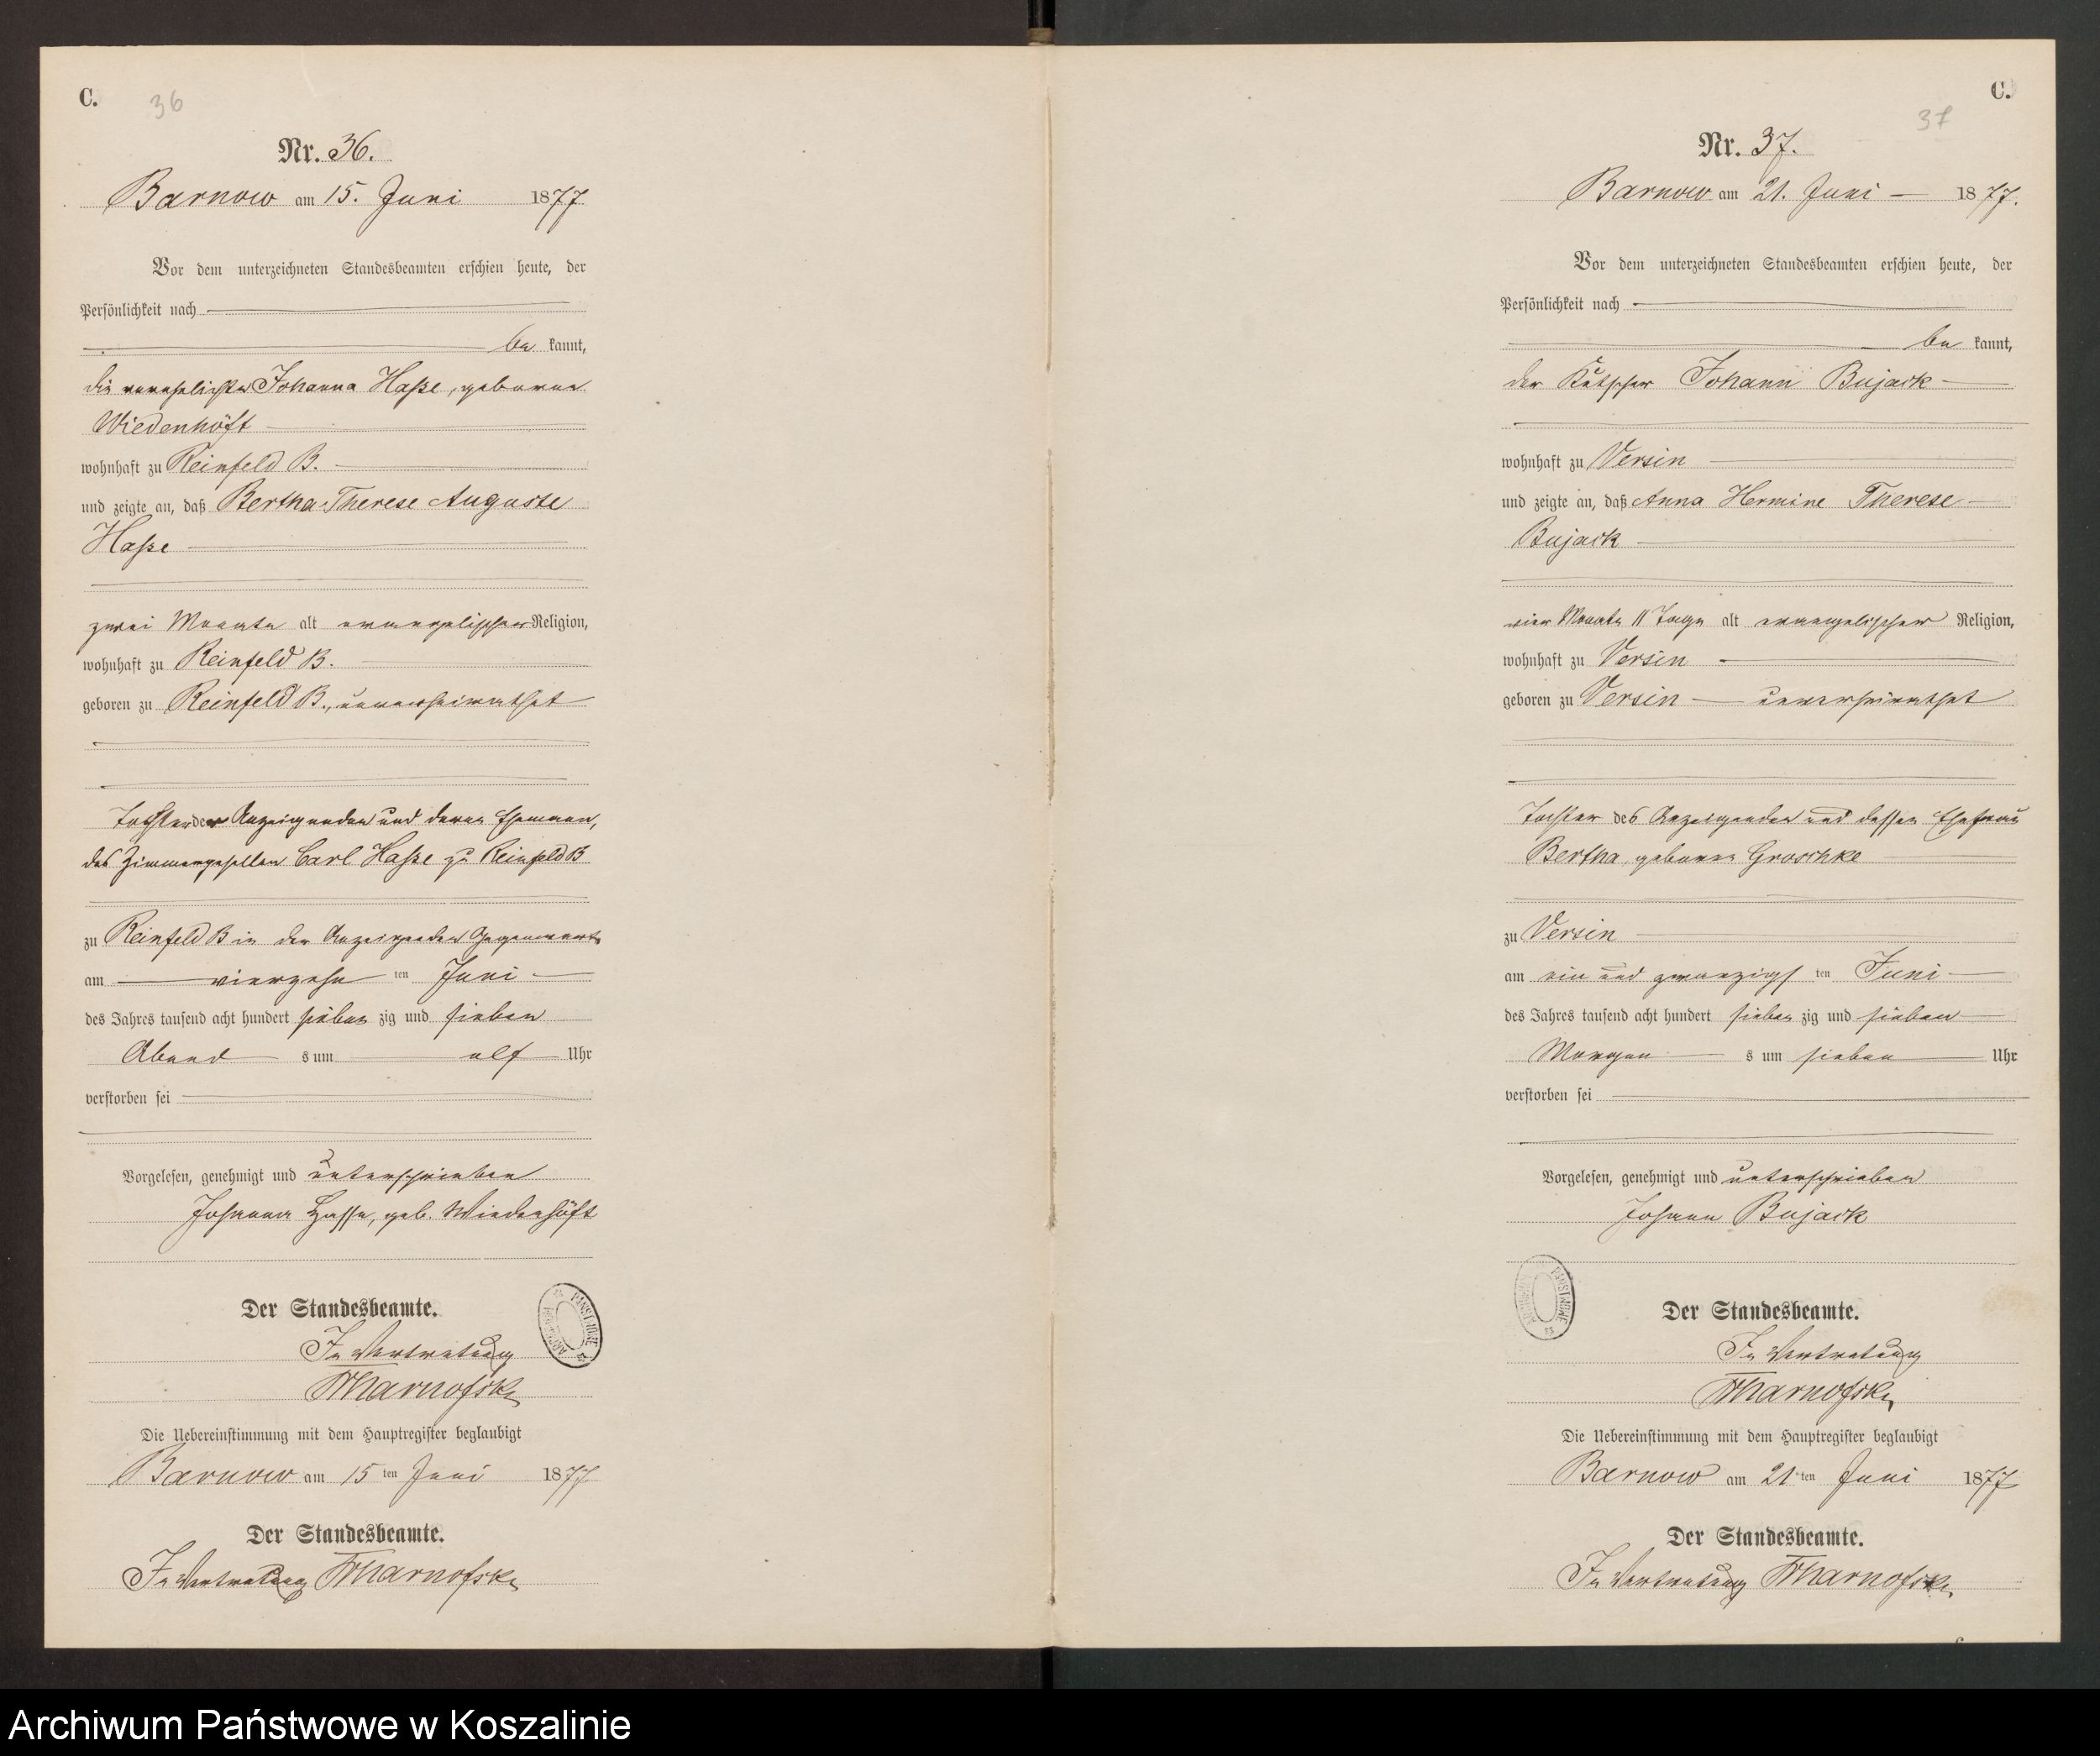 C.
36
Nr. 36.
Barnow am 15. Juni 1877
Vor dem unterzeichneten Standesbeamten erschien heute, der
Persönlichkeit nach
be kannt,
die verehelichte Johanna Haße, geborene
Wiedenhöft
wohnhaft zu Reinfeld B.
und zeigte an, daß Bertha Therese Auguste
Haße
zwei Monate alt evangelischer Religion,
wohnhaft zu Reinfeld B.
geboren zu Reinfeld B., unverheirathet
Tochter der Anzeigenden und deren Ehemann,
des Zimmergesellen Carl Haße zu Reinfeld B
zu Reinfeld B in der Anzeigenden Gegenwart
am vierzehn ten Juni
des Jahres tausend acht hundert sieben zig und sieben
Abend s um elf Uhr
verstorben sei
Vorgelesen, genehmigt und unterschrieben
Johanna Hasse, geb. Wiedenhöft
Der Standesbeamte.
In Vertretung
Die Uebereinstimmung mit dem Hauptregister beglaubigt
Barnow am 15 ten Juni 1877
Der Standesbeamte.
In Vertretung
C.
37
Nr. 37.
Barnow am 21. Juni 1877.
Vor dem unterzeichneten Standesbeamten erschien heute, der
Persönlichkeit nach
be kannt,
der Kutscher Johann Bujack
wohnhaft zu Versin
und zeigte an, daß Anna Hermine Therese
Bujack
vier Monate 11 Tage alt evangelischer Religion,
wohnhaft zu Versin
geboren zu Versin unverheirathet
Tochter des Anzeigenden und dessen Ehefrau
Bertha geborene Groschke
zu Versin
am ein und zwanzigs ten Juni
des Jahres tausend acht hundert sieben zig und sieben
Morgen s um sieben Uhr
verstorben sei
Vorgelesen, genehmigt und unterschrieben
Johann Bujack
Der Standesbeamte.
In Vertretung
Die Uebereinstimmung mit dem Hauptregister beglaubigt
Barnow am 21 ten Juni 1877
Der Standesbeamte.
In Vertretung
Archiwum Państwowe w Koszalinie